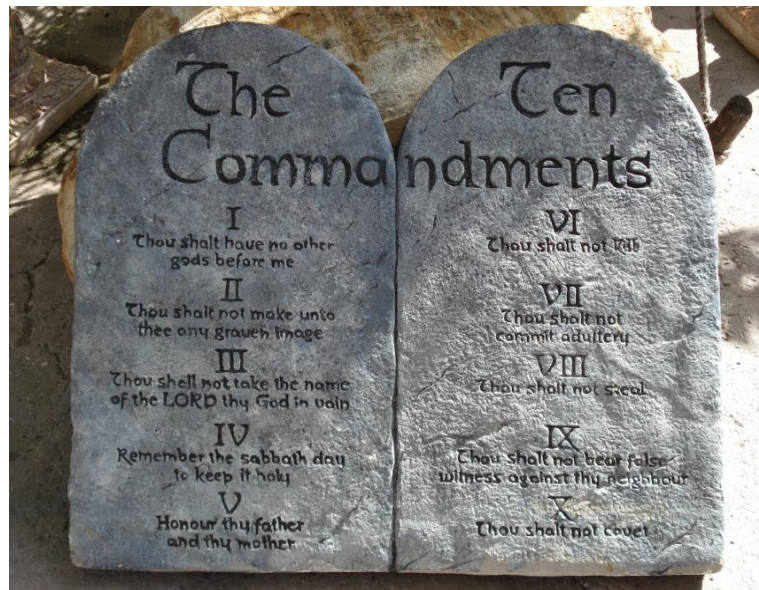 The Ten
Commandments
I
Thou shalt have no other
gods before me
II
Thou shalt not make unto
thee any graven image
III
Thou shall not take the name
of the LORD thy God in vain
IV
Remember the sabbath day
to keep it holy
V
Honour thy father
and thy mother
VI
Thou shalt not kill
VII
Thou shalt not
commit adultery
VIII
Thou shalt not steal
IX
Thou shalt not bear false
witness against thy neighbour
X
Thou shalt not covet